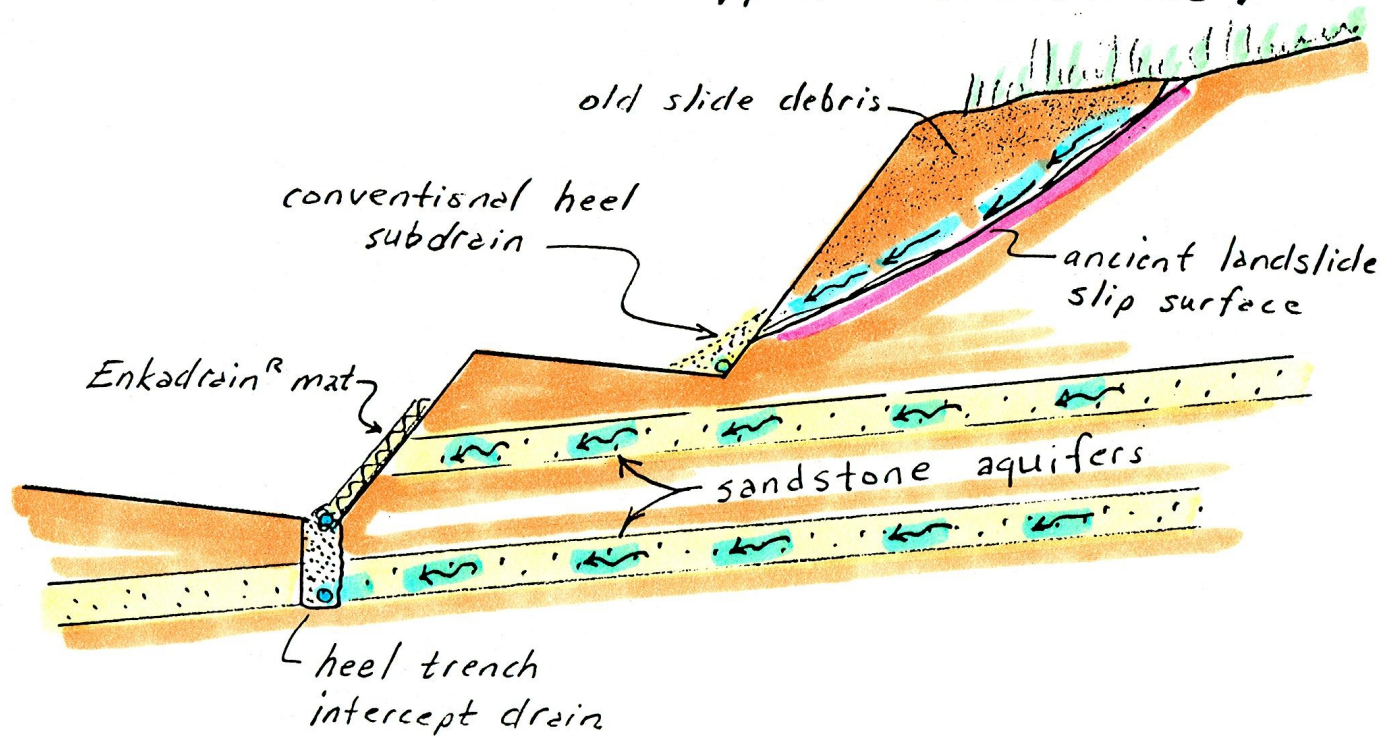 old slide debris
conventional heel
subdrain
ancient landslide
slip surface
Enkadrain® mat
sandstone aquifers
heel trench
intercept drain